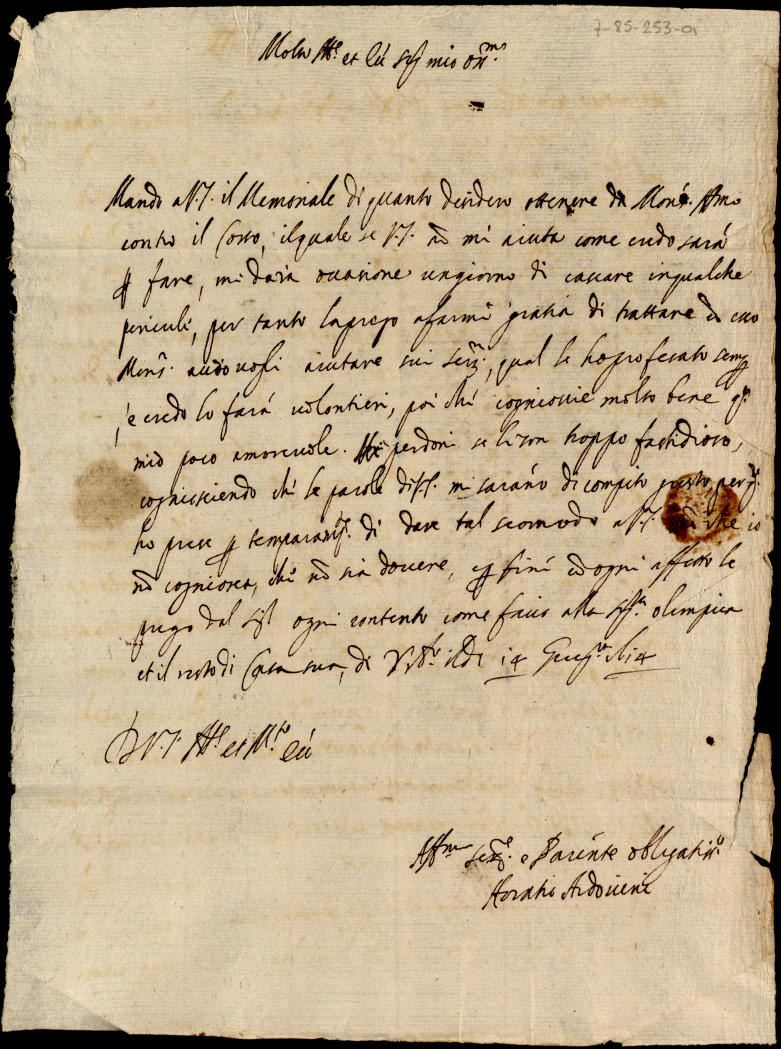 7-85-253-01
Molto Ill.e et Ecc. Sig. mio oss.mo
Mando a V.S. il Memoriale di quanto desidero ottenere da Mons.
contro il Corso, il quale se V.S. nõ mi aiuta come credo sará
ꝑ fare, mi daria occasione un giorno di cascare in qualche
pericoli, per tanto la prego a farmi gratia di trattare cõ esso
Mons. aiutare suoi qual le ho profesato semp
é credo lo fará volontieri, poi chi cogniosie molto bene
mio poco amorevole. perdoni se li son troppo fastidioso,
cognisciendo chi le parole di V.S. mi sarano di compito gusto
ho preso ꝑ di dare tal scomodo a V.S. che io
nõ cogniosca, che nõ sia dovere, ꝑ fine cõ ogni affetto le
prego dal ogni contento come facio alla Sig.ra olimpica
et il resto di Casa sua, di li 14
D V.S. Ill.e et M.to Ecc.
Aff.mo Ser.e e Parénte obligatis.o
Horatio Ardoveni